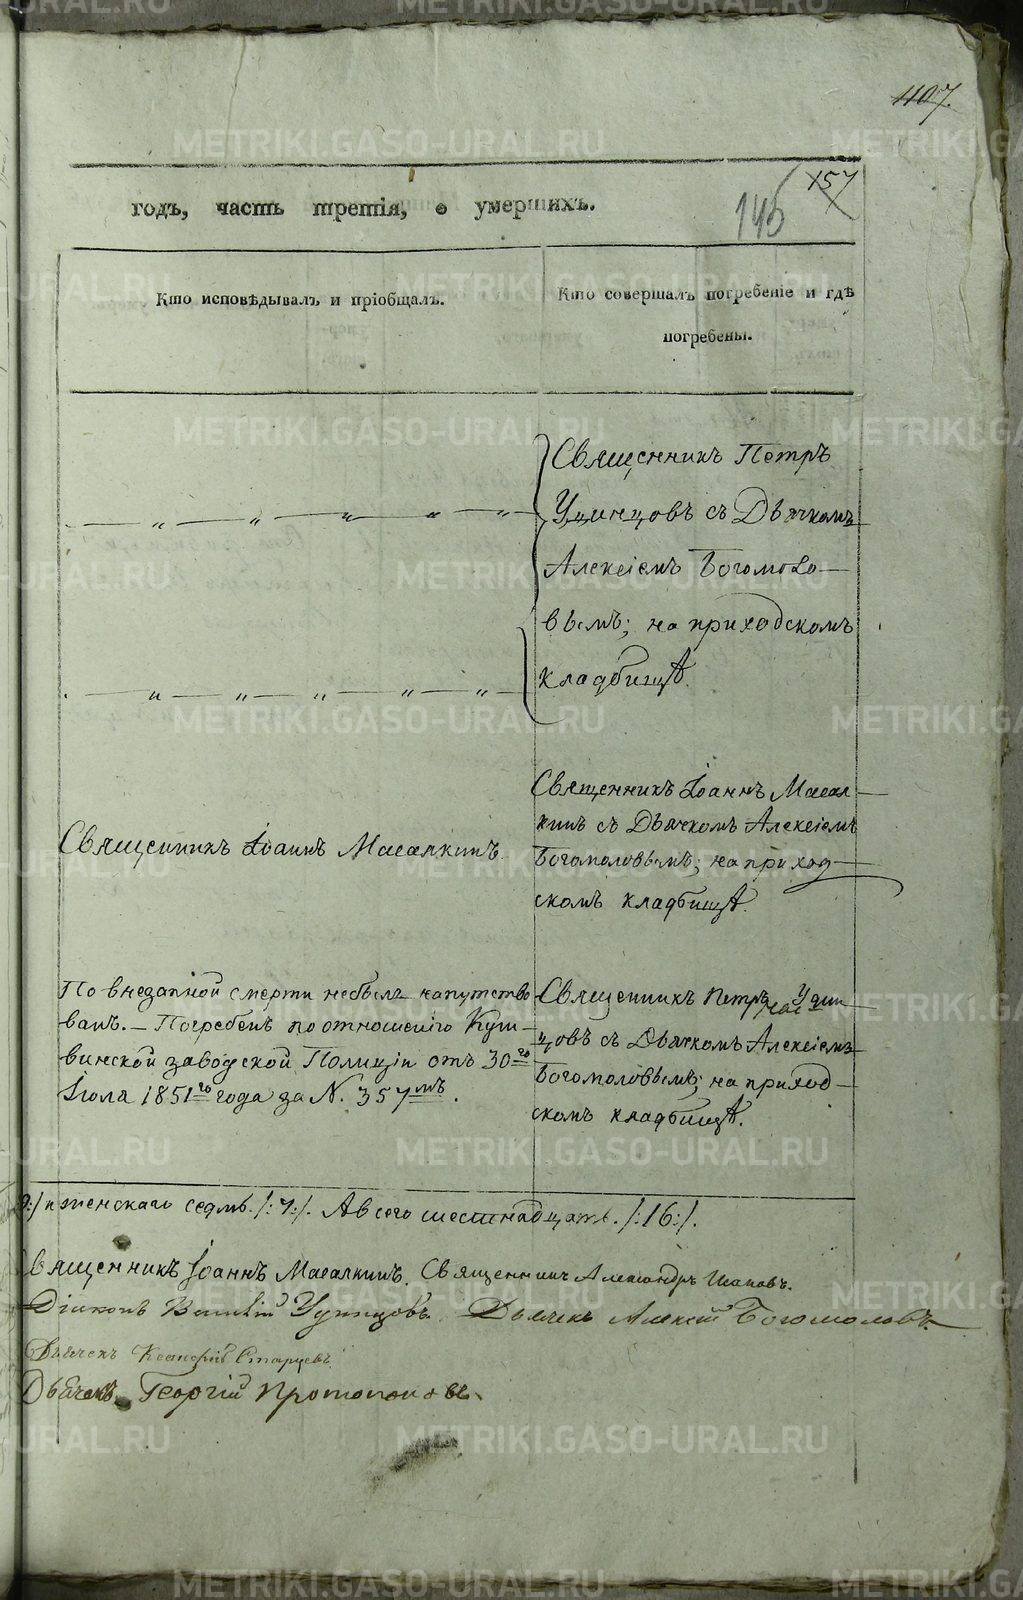 407.
157
145
годъ, часть третія, о умершихъ.
Кто исповѣдывалъ и пріобщалъ.
Кто совершалъ погребеніе и гдѣ
погребены.
Священникъ Петръ
Удинцовъ съ Дьячкомъ
Алексіемъ Богомоло-
вымъ; на приходскомъ
кладбищѣ.
Священникъ Іоаннъ Масалкинъ.
Священникъ Іоаннъ Масал-
кинъ съ Дьячкомъ Алексіемъ
Богомоловымъ; на приход-
скомъ кладбищѣ.
По внезапной смерти небылъ напутство
ванъ. – Погребенъ по отношенію Куш-
винской заводской Полиціи отъ 30го
Іюла 1851го года за N. 357мъ.
Священникъ Петръ Удин-
цовъ съ Дьячкомъ Алексіемъ
Богомоловымъ; на приход-
скомъ кладбищѣ.
9:/ и женскаго седмь. /:7:/. А всего шестнадцать. /:16:/.
Священникъ Іоаннъ Масалкинъ. Священникъ Александръ
Діаконъ Василій Удинцовъ. Дьячекъ Алексій Богомоловъ.
Дьячекъ Старцевъ
Дьячекъ Георгій Протопоповъ
METRIKI.GASO-URAL.RU